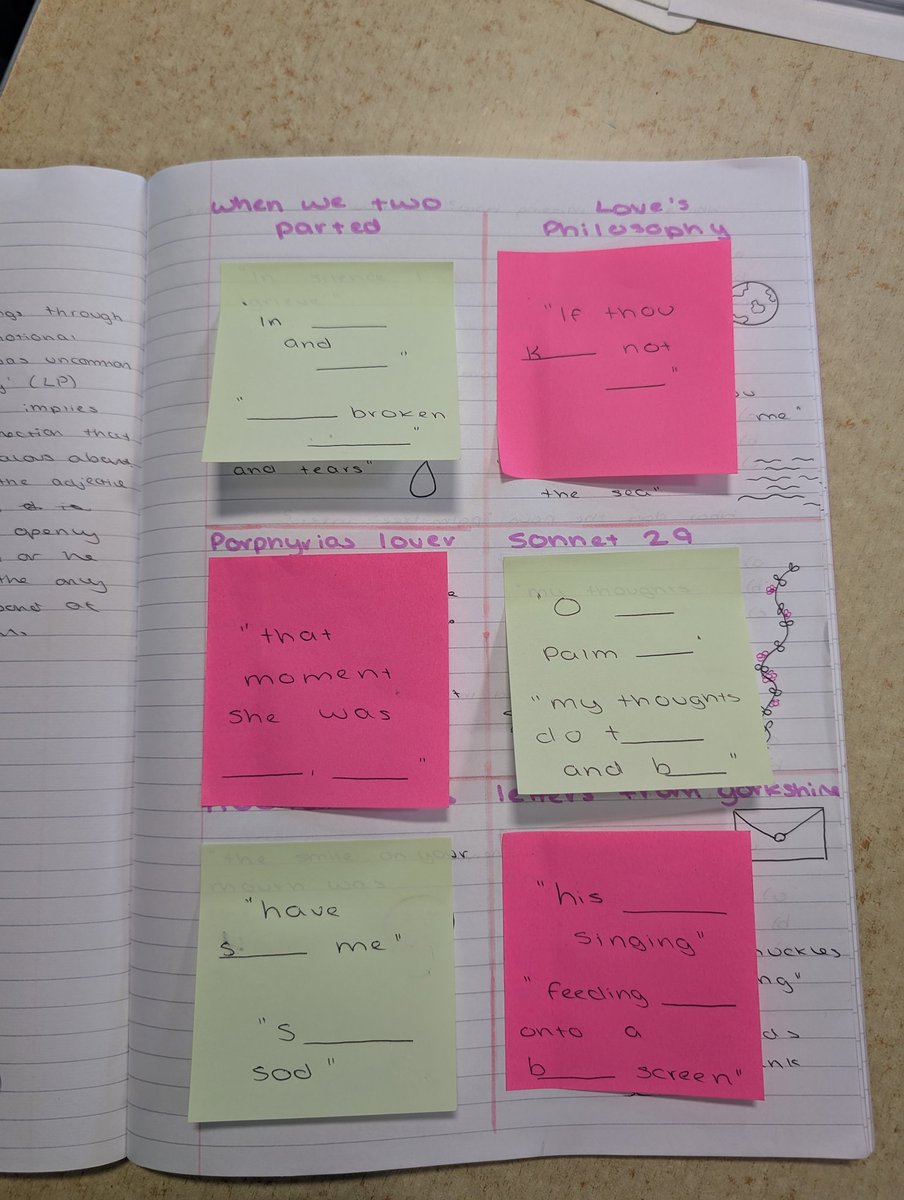 ngs through
otional
as uncommon
y' (LP)
implies
nection that
alous about
the adjective
openly
or he
the only
and of
when we two
parted
"In silence I
grieve"
"In ______
and
______"
"______ broken
______"
and tears"
Love's
Philosophy
"If thou
k______ not
______"
ou
me"
the sea"
Porphyrias lover
"that
moment
she was
______, ______"
Sonnet 29
my thoughts
"O ______
palm ______"
"my thoughts
do t______
and b______"
"the smile on your
mouth was
"have
s______ me"
"S______
sod"
letters from yorkshire
"his ______
singing"
"feeding ______
onto a
b______ screen"
nuckles
ng"
ds
ink